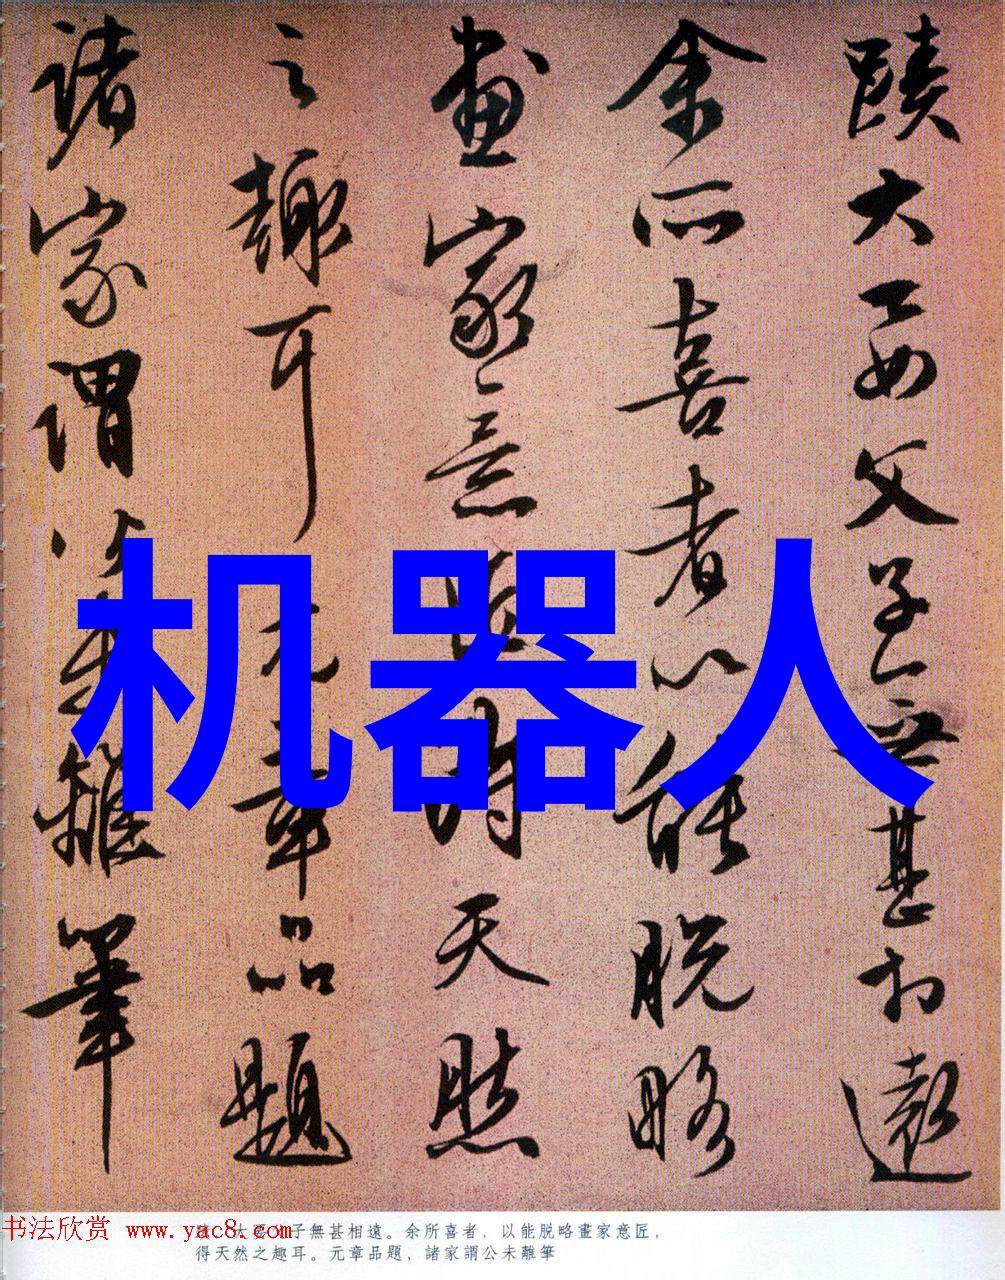 蹟大要父子無甚相遠
余所喜者以能脱略
畫家意匠得天然
之趣耳元章品題
諸家謂公未離筆
机器人
书法欣赏 www.yac8.com
蹟，大要父子無甚相遠。余所喜者，以能脱略畫家意匠，
得天然之趣耳。元章品題，諸家謂公未離筆